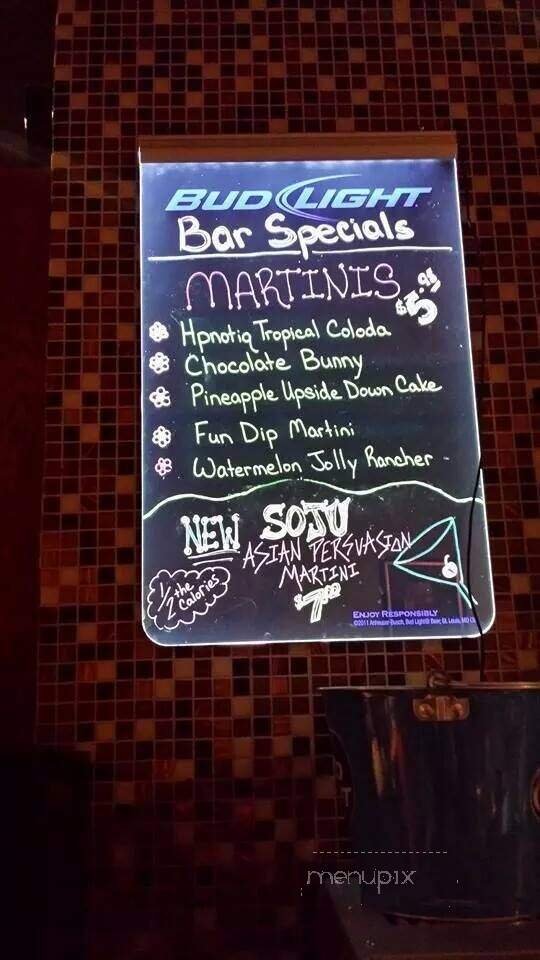 BUD LIGHT
Bar Specials
MARTINIS $5.95
Hpnotiq Tropical Coloda
Chocolate Bunny
Pineapple Upside Down Cake
Fun Dip Martini
Watermelon Jolly Rancher
NEW SOJU
ASIAN PERSUASION
MARTINI
$7.00
1/2 the
Calories
ENJOY RESPONSIBLY
©2011 Anheuser-Busch, Bud Light® Beer, St. Louis, MO
menupix